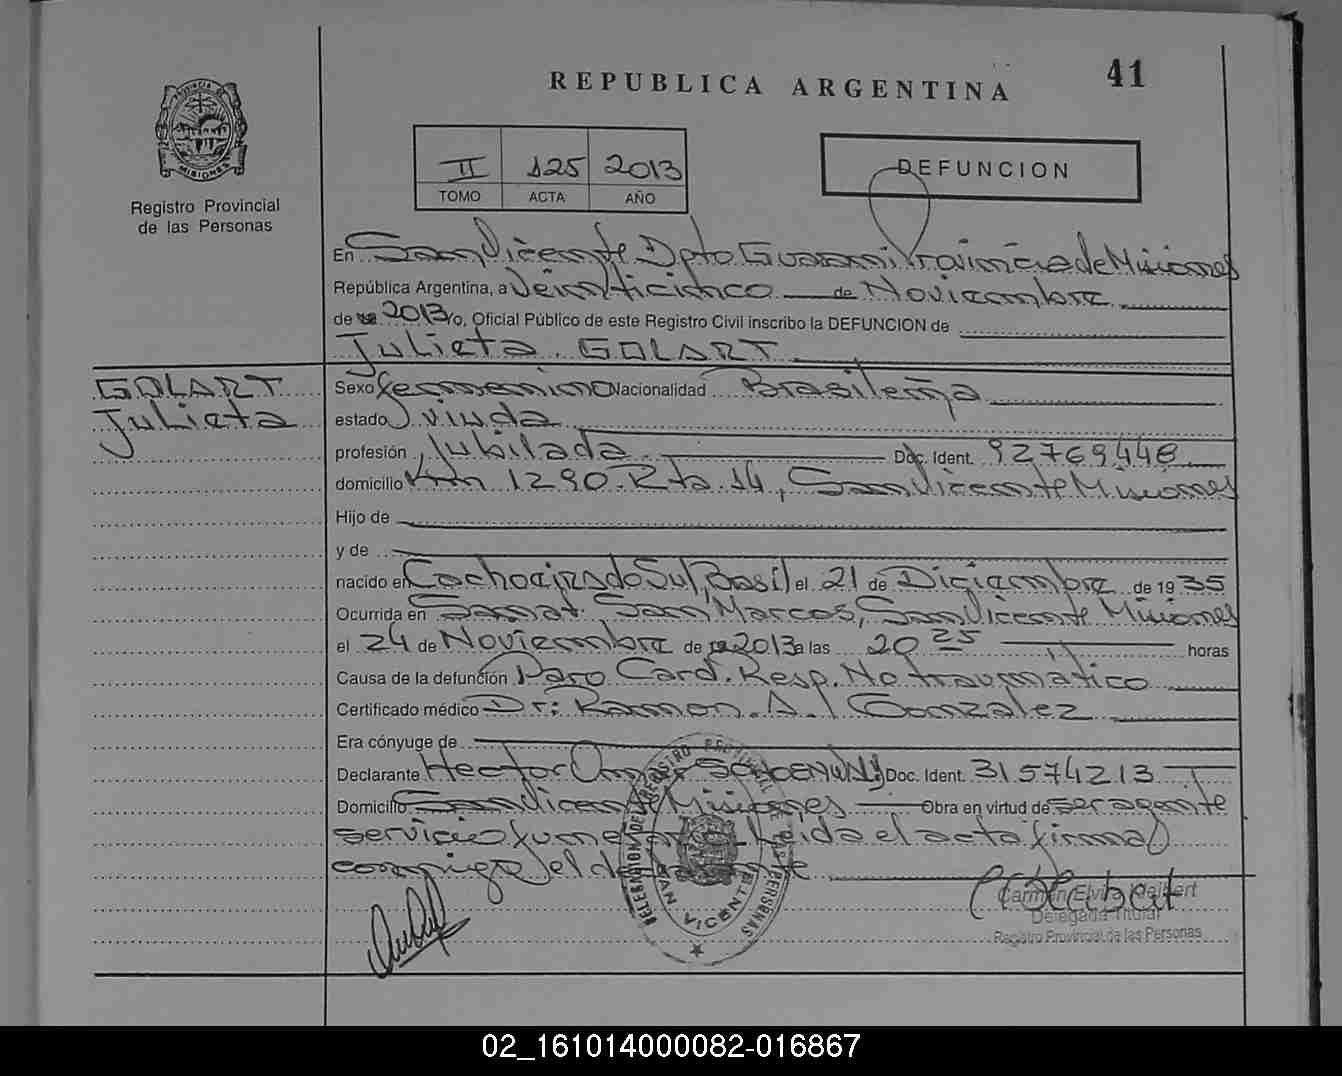 REPUBLICA ARGENTINA
41
PROVINCIA DE
MISIONES
Registro Provincial
de las Personas
II 125 2013
TOMO ACTA AÑO
DEFUNCION
En San Vicente Dpto Guarani Provincia de Misiones
República Argentina, a Veinticinco de Noviembre
de 2013 yo, Oficial Público de este Registro Civil inscribo la DEFUNCION de
Julieta GOLART
GOLART
Julieta
Sexo femenino Nacionalidad Brasileña
estado viuda
profesión Jubilada Doc. Ident. 92769448
domicilio Km 1290 Rta 14, San Vicente Misiones
Hijo de
y de
nacido en Cachoeira do Sul, Brasil el 21 de Diciembre de 1935
Ocurrida en Sanat. San Marcos, San Vicente Misiones
el 24 de Noviembre de 2013 a las 20 25 horas
Causa de la defunción Paro Card. Resp. No traumatico
Certificado médico Dr: Ramon A. Gonzalez
Era cónyuge de
Declarante Hector Omar Doc. Ident. 31574213
Domicilio San Vicente Misiones Obra en virtud de ser agente
servicio funerario leida el acta firma
conmigo el declarante
DELEGACION DEL REGISTRO PROVINCIAL DE LAS PERSONAS
SAN VICENTE
Carmen Elvira
Delegada Titular
Registro Provincial de las Personas
02_161014000082-016867